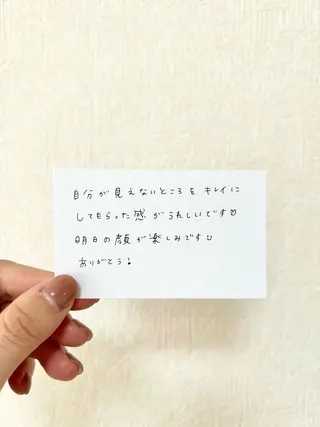 自分が見えないところをキレイに
してもらった感がうれしいです♡
明日の顔が楽しみです☺
ありがとう!